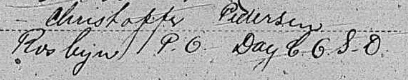 Christoffer Pedersen
Roslyn P.O. Day C.O. S.D.